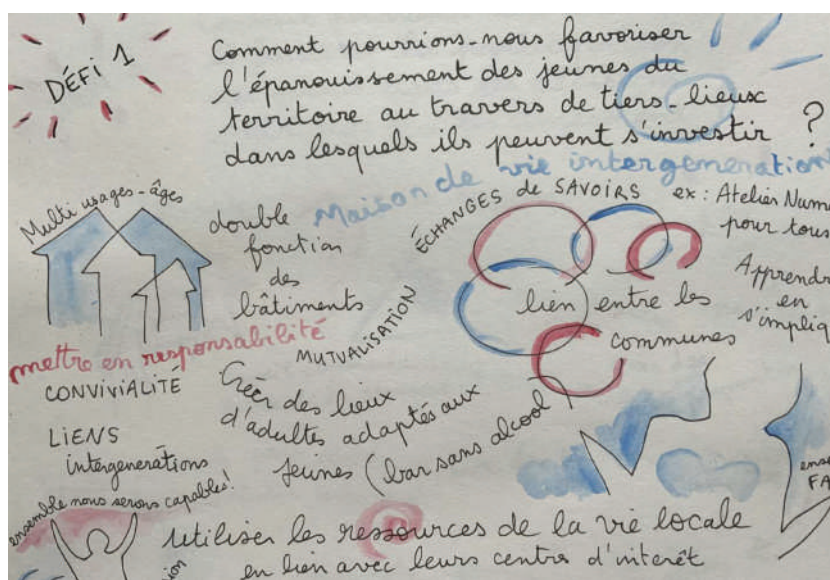 DÉFI 1
Comment pourrions-nous favoriser
l'épanouissement des jeunes du
territoire au travers de tiers-lieux
dans lesquels ils peuvent s'investir ?
Maison de vie intergeneration
Multi usages-âges
double
fonction
des
bâtiments
ÉCHANGES de SAVOIRS ex : Atelier
pour tous
lien entre les
communes
en
MUTUALISATION
mettre en responsabilité
CONVIVIALITÉ
LIENS
intergenerations
ensemble nous serons capables!
Créer des lieux
d'adultes adaptés aux
Jeunes (bar sans alcool)
utiliser les ressources de la vie locale
en lien avec leurs centre d'interêt